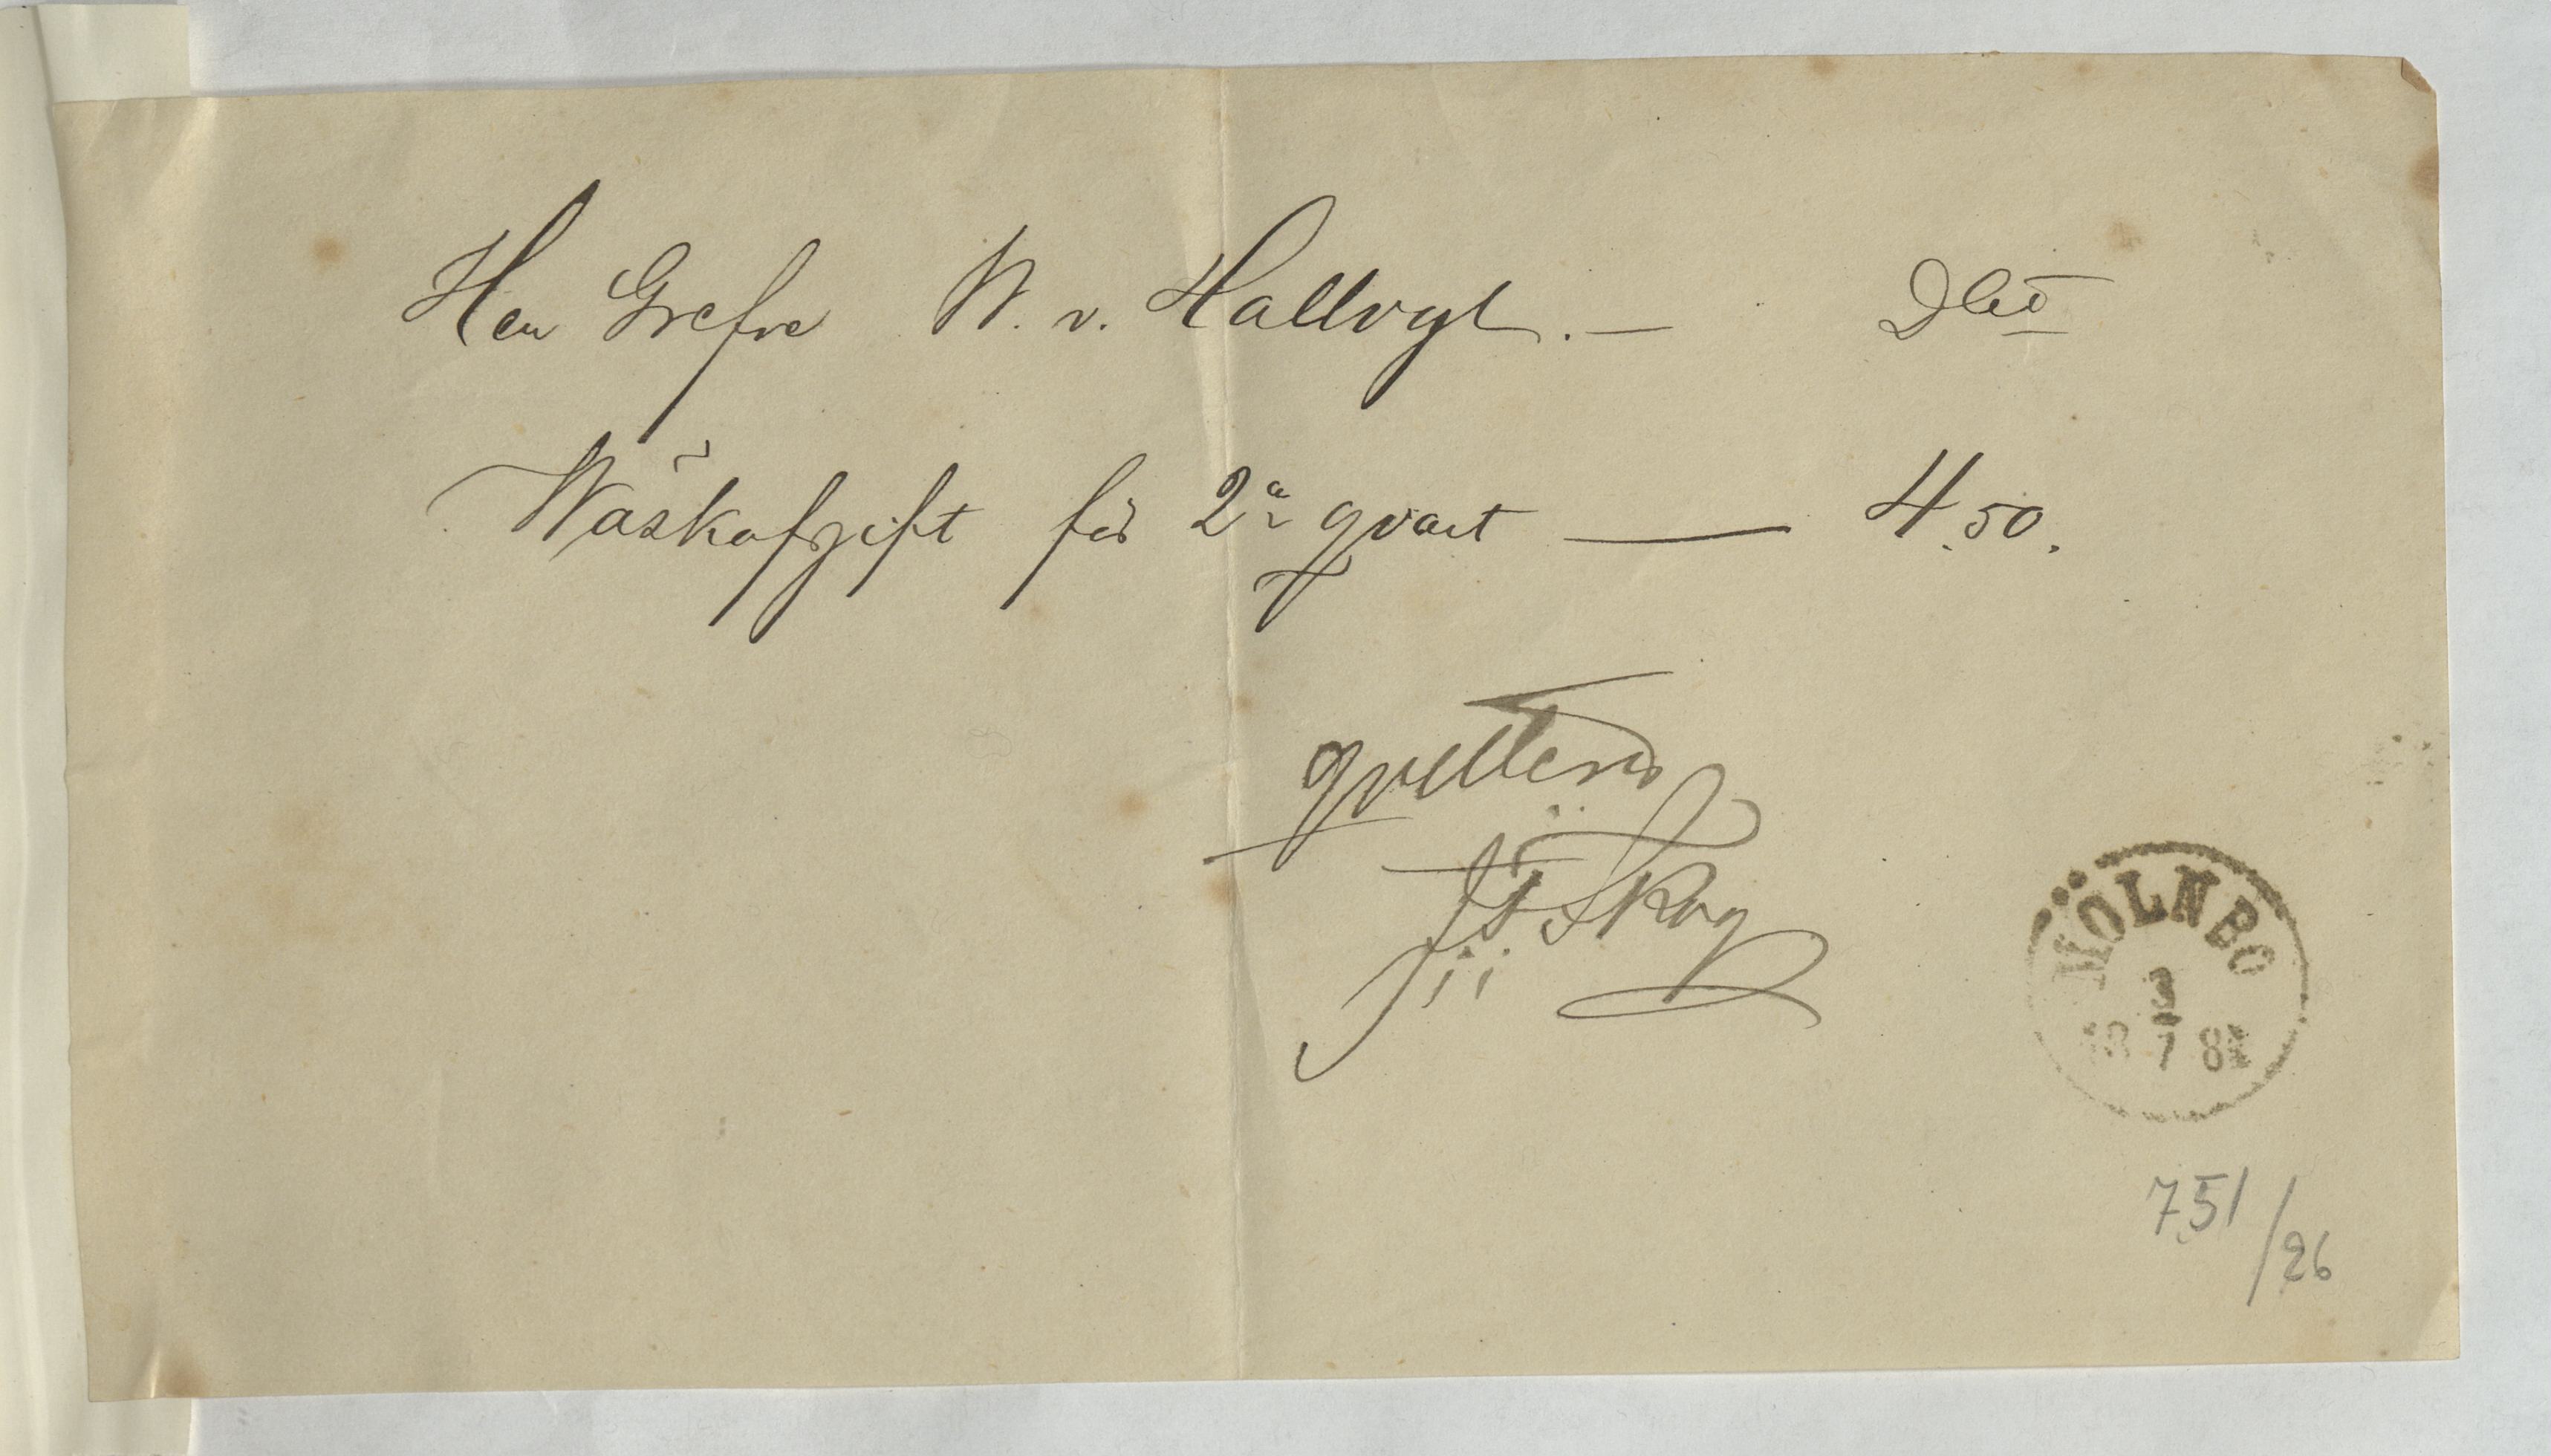 Herr Grefve W. v. Hallvyl. — Debet
Wäskafgift för 2a qvart — 4.50.
qvitteras
Skog
MÖLNBO
3
7
751/26